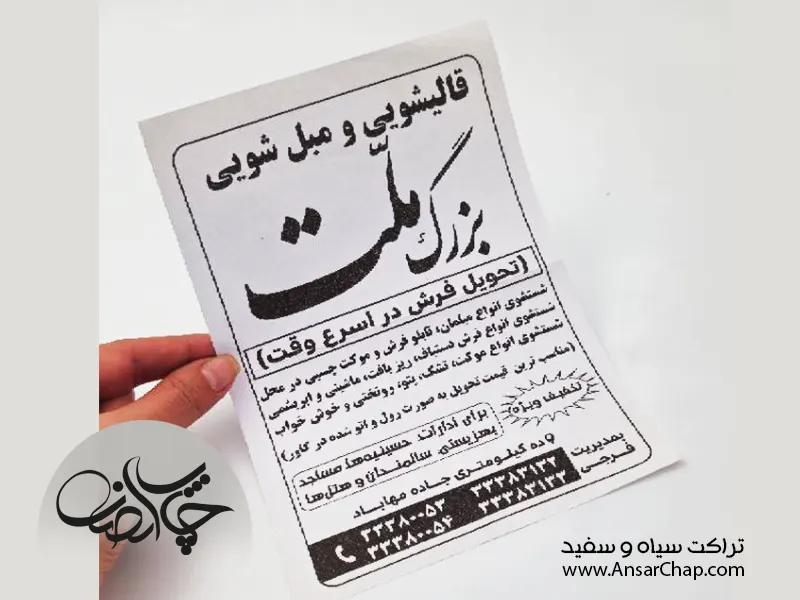 قالیشویی و مبل شویی
بزرگ ملّت
(تحویل فرش در اسرع وقت)
شستشوی انواع مبلمان، تابلو فرش و موکت چسبی در محل
شستشوی انواع فرش دستباف، ریز بافت، ماشینی و ابریشمی
شستشوی انواع موکت، تشک، پتو، روتختی و خوش خواب
(مناسب ترین قیمت تحویل به صورت رول و اتو شده در کاور)
تخفیف ویژه
برای ادارات، حسینیه‌ها، مساجد
بهزیستی، سالمندان و هتل‌ها
ده کیلومتری جاده مهاباد
بمدیریت:
فرجی
۳۳۳۸۰۰۵۳ ۳۳۳۸۳۱۳۲
۳۳۳۸۰۰۵۴ ۳۳۳۸۳۱۳۳
چاپ انصار
تراکت سیاه و سفید
www.AnsarChap.com